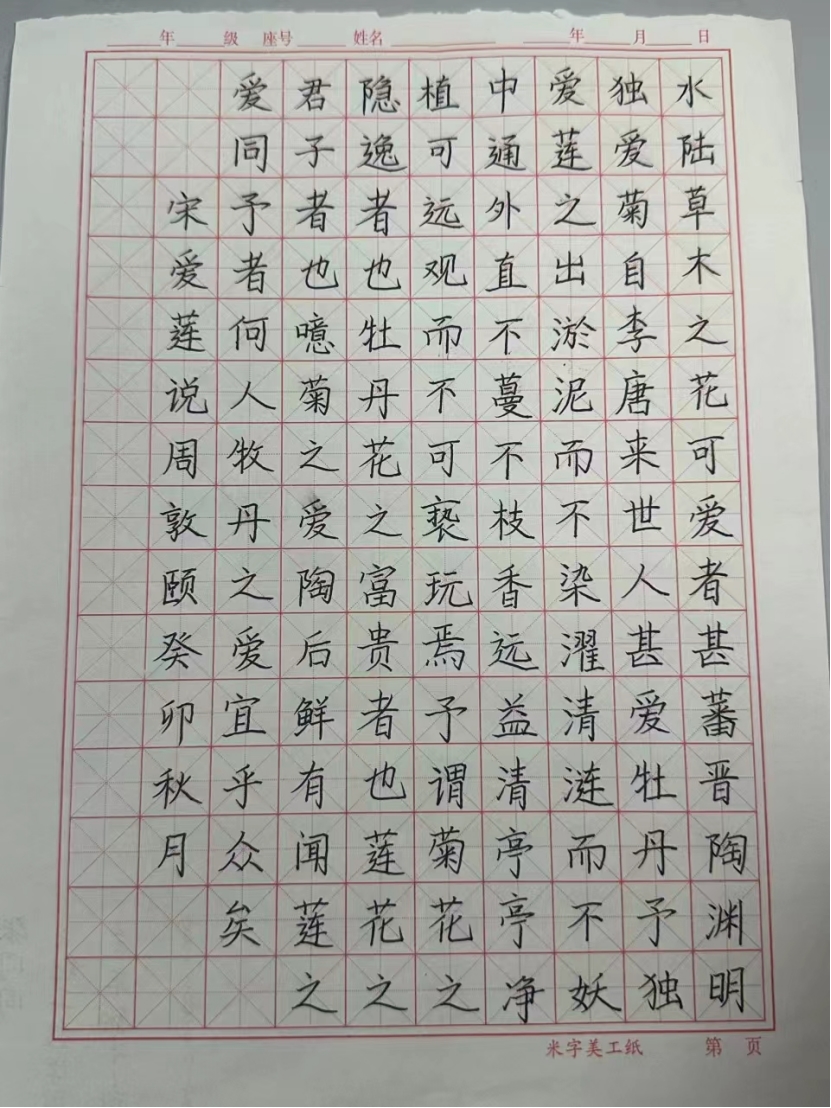 年 级 座号 姓名 年 月 日
水陆草木之花可爱者甚蕃晋陶渊明
独爱菊自李唐来世人甚爱牡丹予独
爱莲之出淤泥而不染濯清涟而不妖
中通外直不蔓不枝香远益清亭亭净
植可远观而不可亵玩焉予谓菊花之
隐逸者也牡丹花之富贵者也莲花之
君子者也噫菊之爱陶后鲜有闻莲之
爱同予者何人牧丹之爱宜乎众矣
宋爱莲说周敦颐癸卯秋月
米字美工纸 第 页